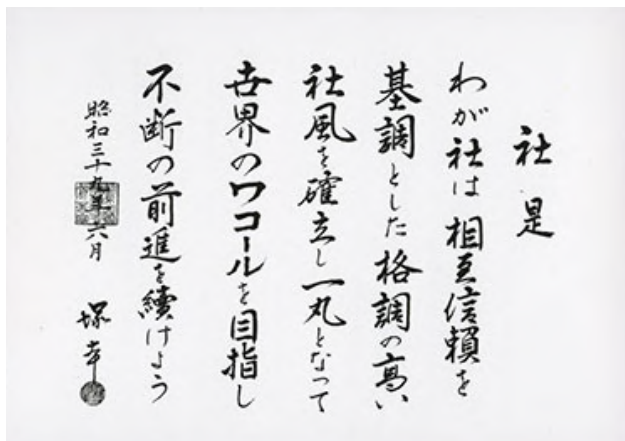 社是
わが社は相互信頼を
基調とした格調の高い
社風を確立し一丸となって
世界のワコールを目指し
不断の前進を續けよう
昭和三十九年六月
塚幸